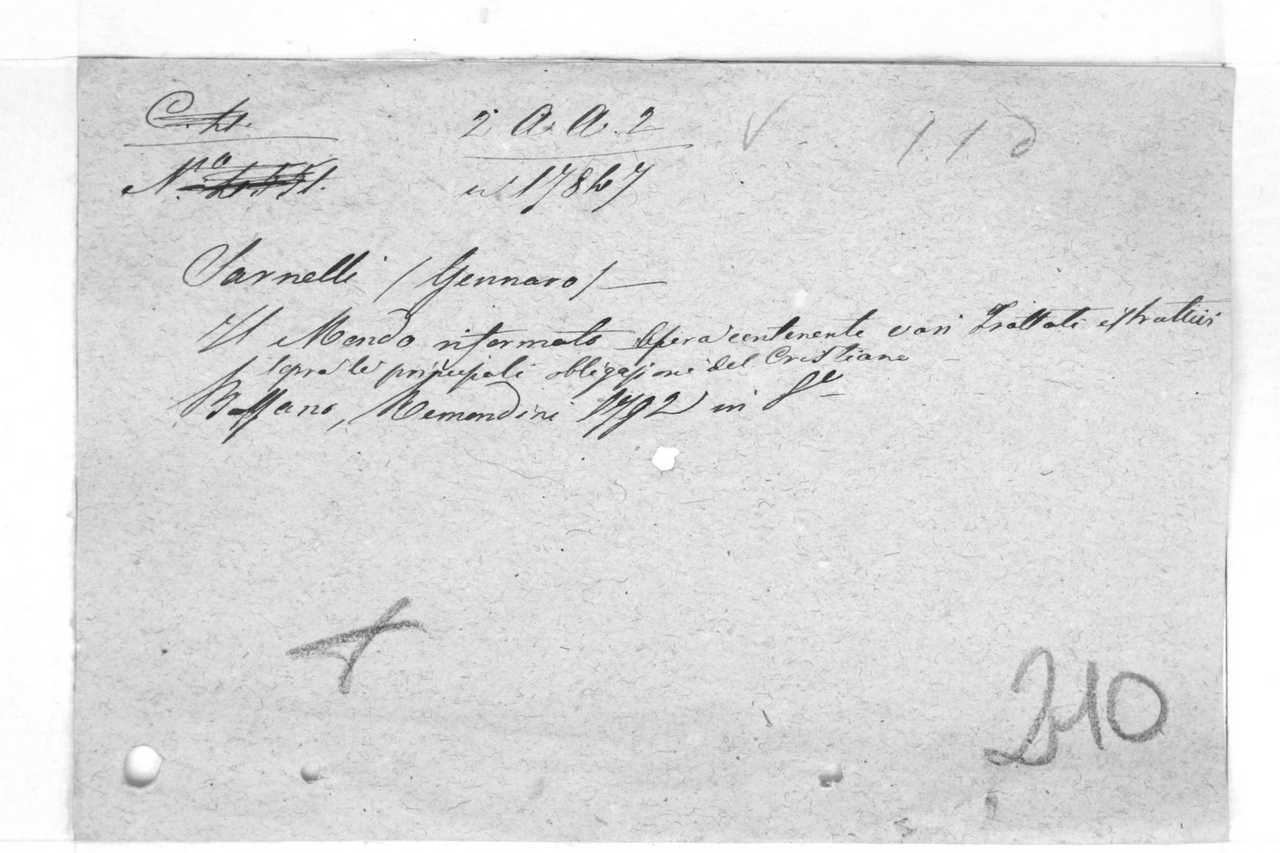 2 A. A. 2
1.1.D
17847
Sarnelli (Gennaro) —
Il Mondo riformato Opera contenente vari Trattati istruttivi
sopra le principali obligazioni del Cristiano
Bassano, Remondini 1792 in 8º
210